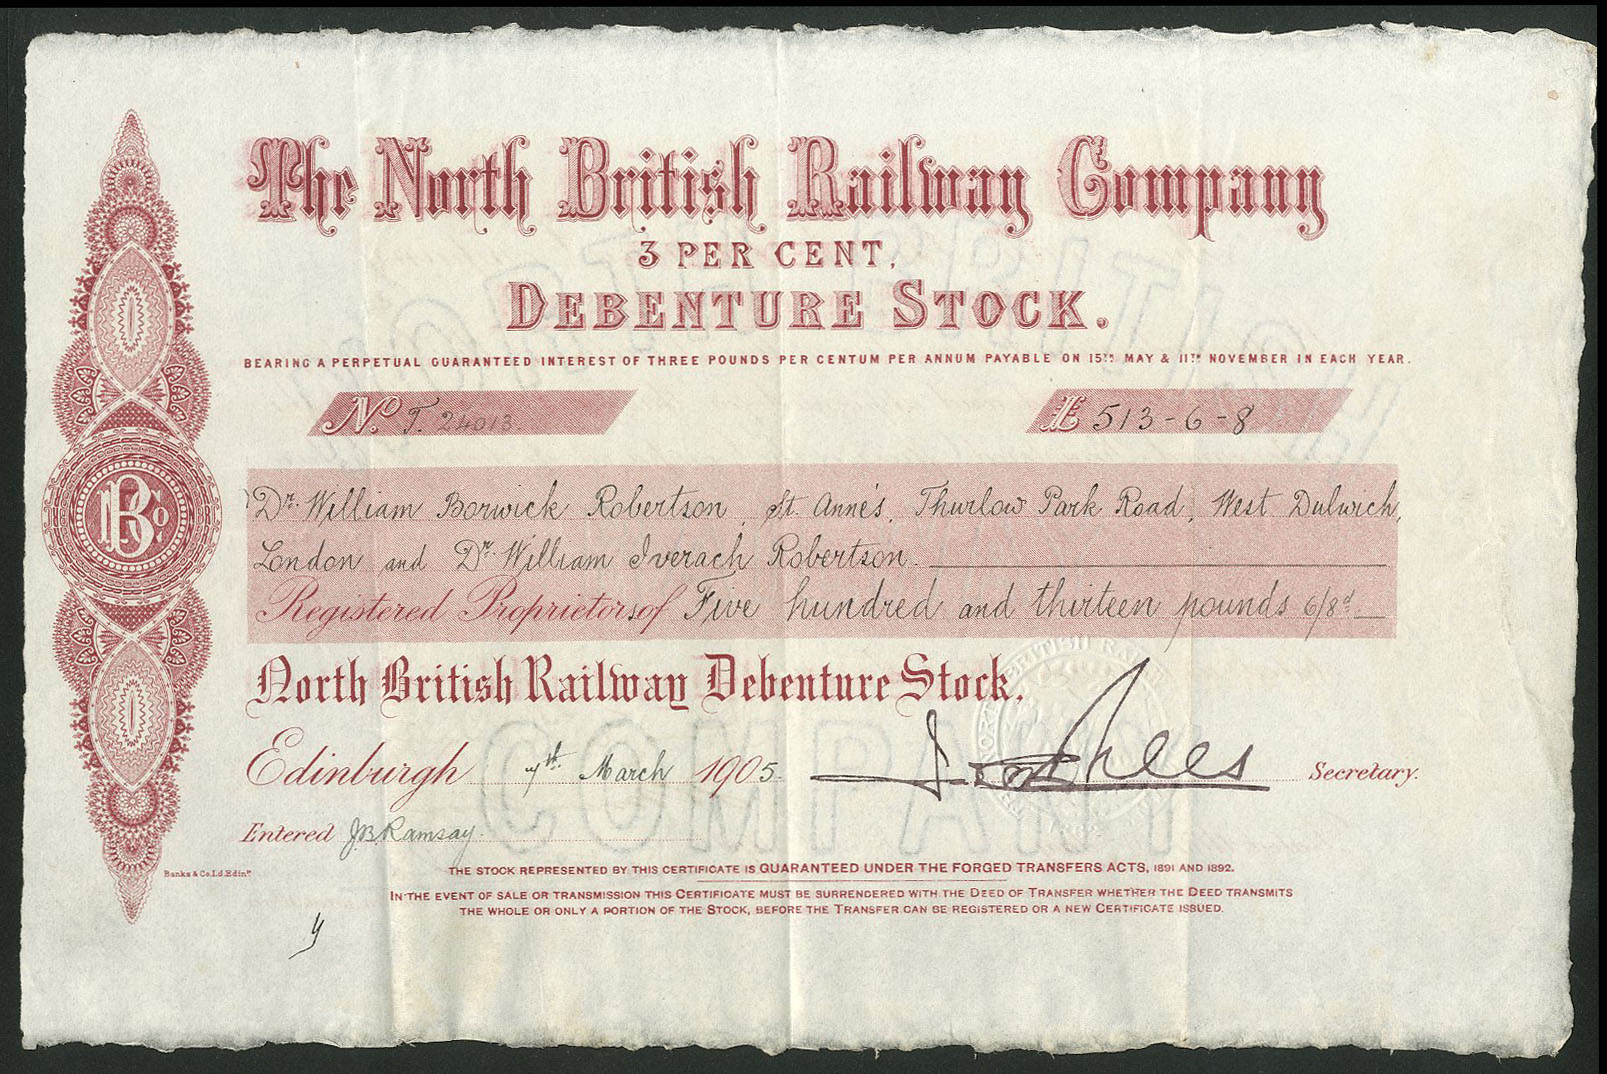 The North British Railway Company
3 PER CENT.
DEBENTURE STOCK.
BEARING A PERPETUAL GUARANTEED INTEREST OF THREE POUNDS PER CENTUM PER ANNUM PAYABLE ON 15TH MAY & 11TH NOVEMBER IN EACH YEAR.
No. T. 24013.
£ 513-6-8
Dr. William Borwick Robertson, St. Anne's, Thurlow Park Road, West Dulwich,
London and Dr. William Iverach Robertson.
Registered Proprietors of Five hundred and thirteen pounds 6/8d.
North British Railway Debenture Stock.
Edinburgh 7th March 1905
Secretary.
Entered J.B. Ramsay.
Banks & Co. Ld. Edinr.
THE STOCK REPRESENTED BY THIS CERTIFICATE IS GUARANTEED UNDER THE FORGED TRANSFERS ACTS, 1891 AND 1892.
IN THE EVENT OF SALE OR TRANSMISSION THIS CERTIFICATE MUST BE SURRENDERED WITH THE DEED OF TRANSFER WHETHER THE DEED TRANSMITS
THE WHOLE OR ONLY A PORTION OF THE STOCK, BEFORE THE TRANSFER CAN BE REGISTERED OR A NEW CERTIFICATE ISSUED.